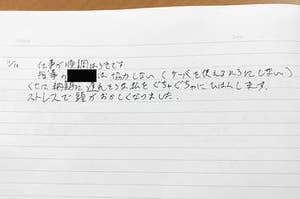 仕事が順調はうそです
指導の は協力しない(ケースを使えるようにしない)
くせに納期に遅れそうな私をぐちゃぐちゃにひはんします。
ストレスで頭がおかしくなりました.